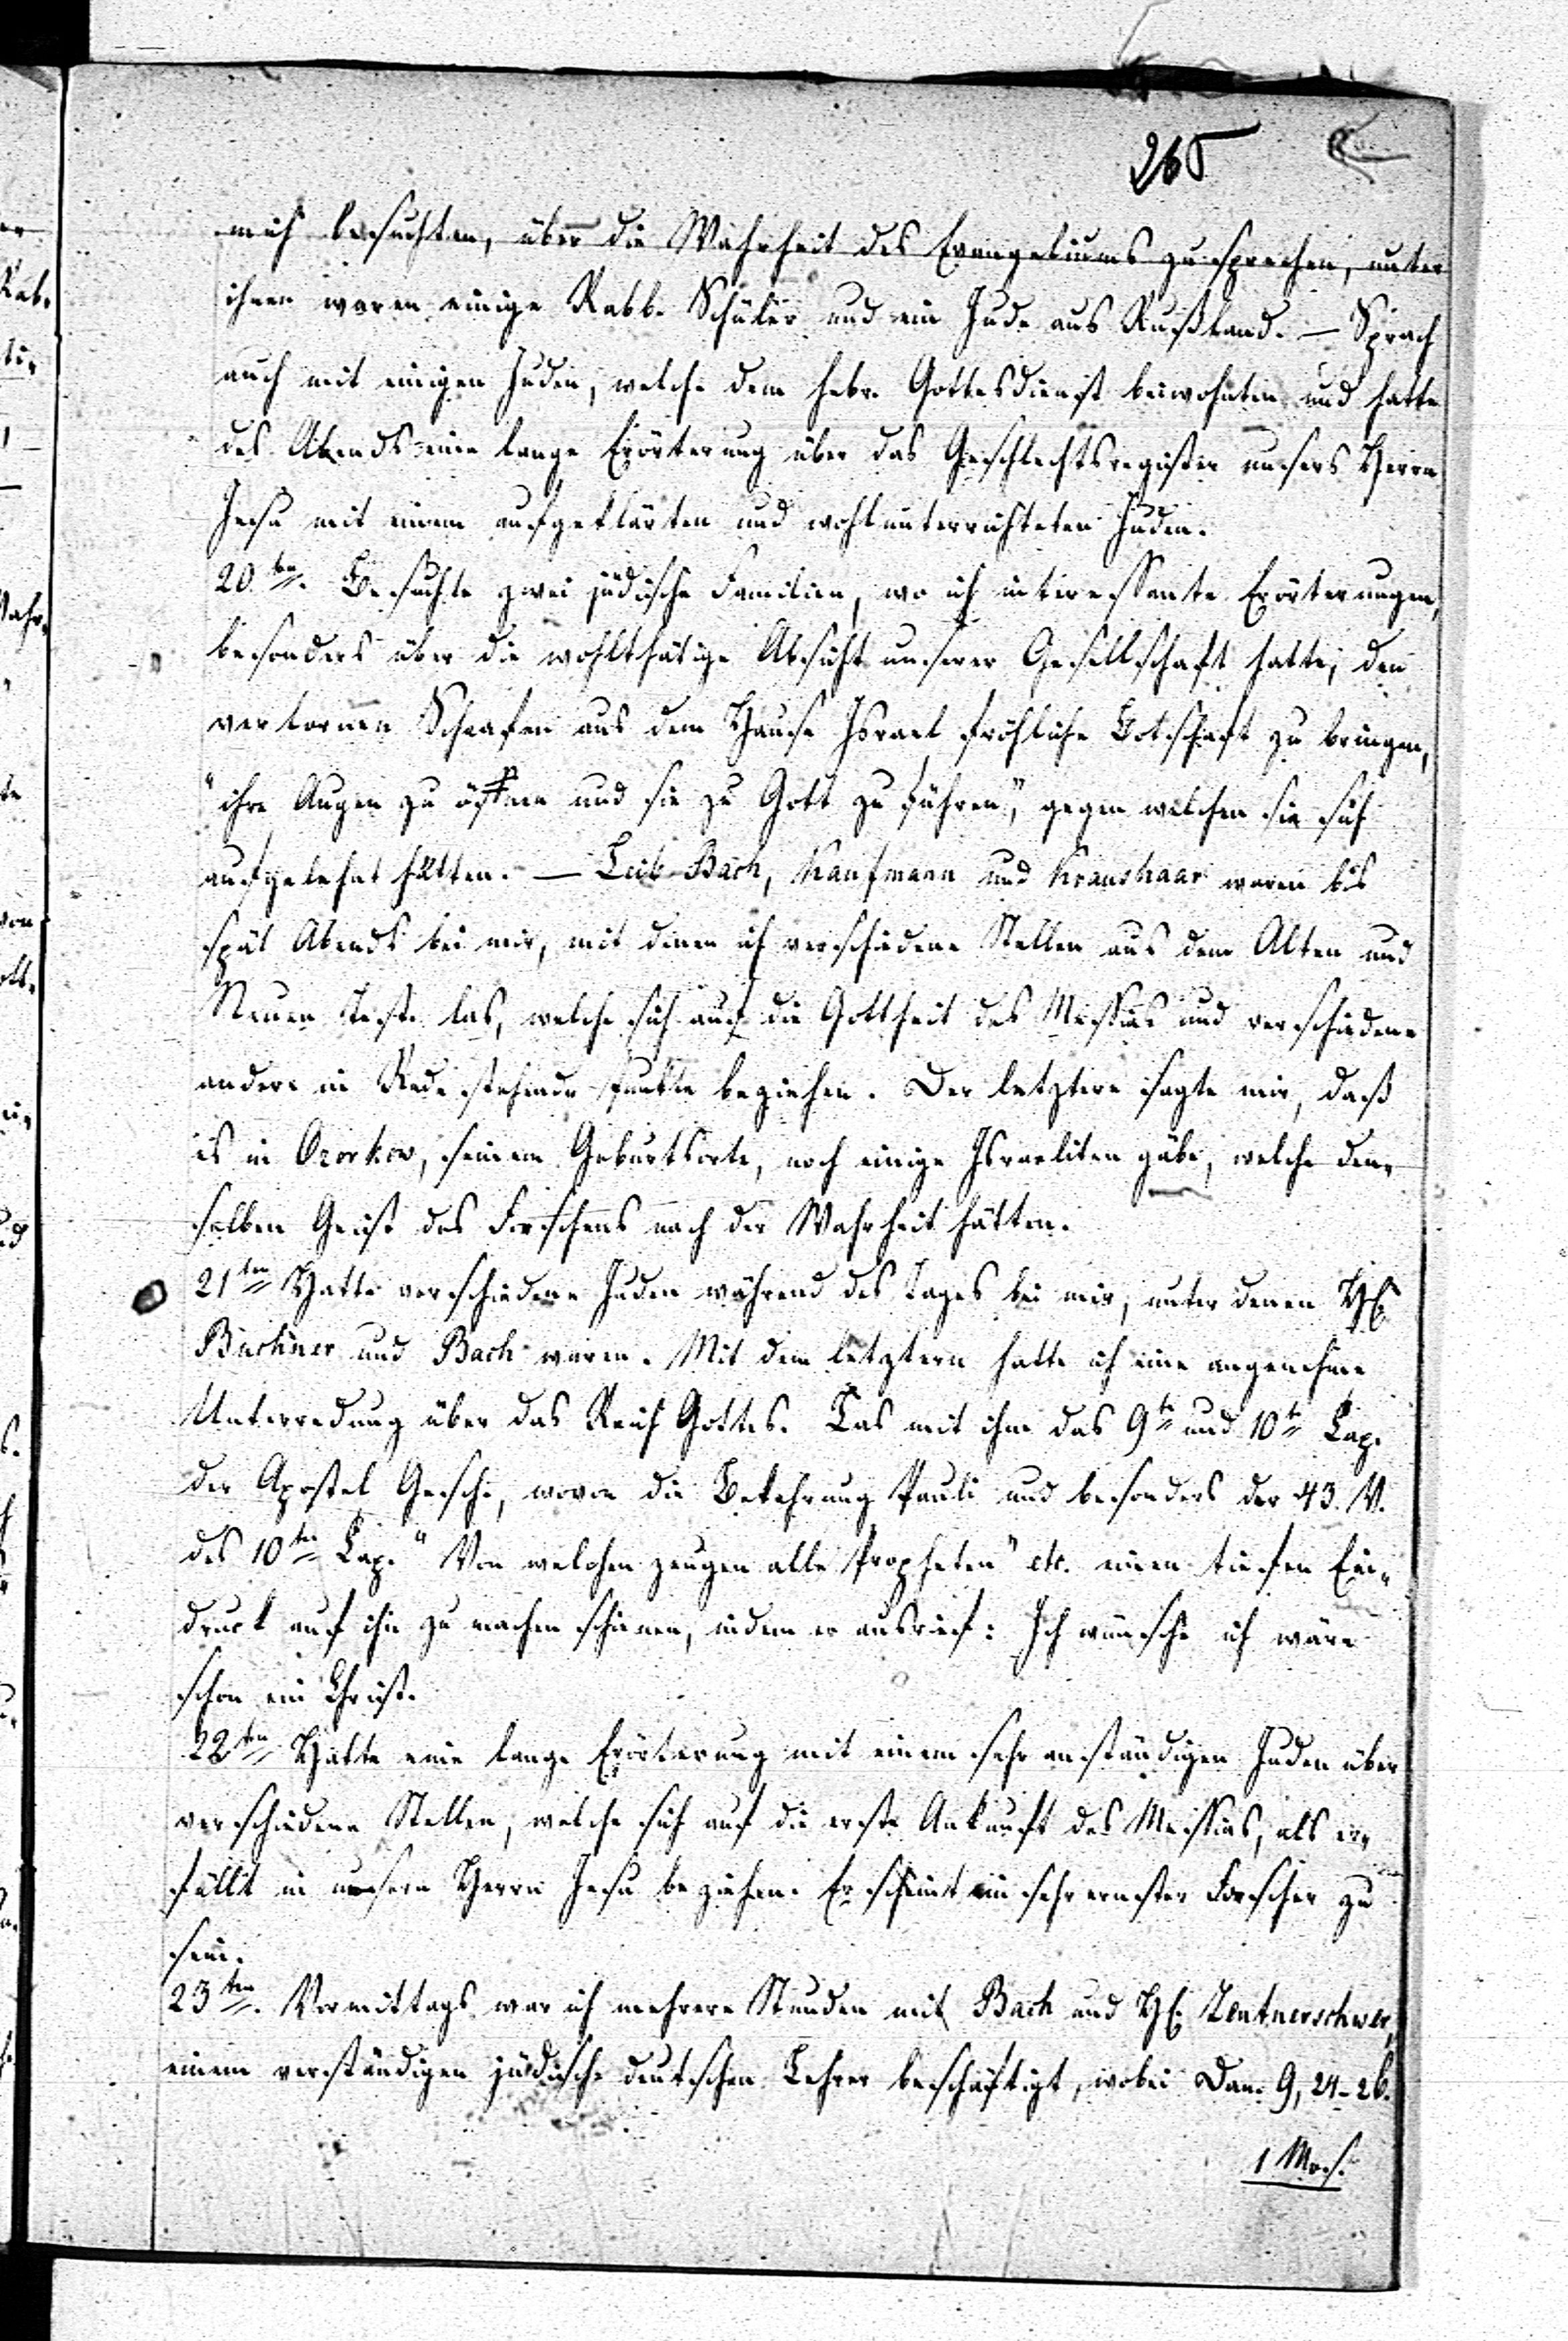 265
mich besuchten, über die Wahrheit des Evangeliums zu sprechen, unter
ihnen waren einige Rabb. Schüler und ein Jude aus Rußland. — Sprach
auch mit einigen Juden, welche dem hebr. Gottesdienst beiwohnten und hatte
des Abends eine lange Erörterung über das Geschlechtsregister unsers Herrn
Jesu mit einem aufgeklärten und wohlunterrichteten Juden.
20ten. Besuchte zwei jüdische Familien, wo ich interessante Erörterungen,
besonders über die wohlthätige Absicht unserer Gesellschaft hatte, den
verlornen Schaafen aus dem Hause Israel fröhliche Botschaft zu bringen,
"ihre Augen zu öffnen und sie zu Gott zu führen", gegen welchen sie sich
aufgelehnt hätten. — Leib Bach, Kaufmann und Kraushaar waren bis
spät Abends bei mir, mit denen ich verschiedene Stellen aus dem Alten und
Neuen Test. las, welche sich auf die Gottheit des Messias und verschiedene
andere in Rede stehende Punkte beziehen. Der letztere sagte mir, daß
es in Ozorkow, seinem Geburtsorte, noch einige Israeliten gäbe, welche den-
selben Geist des Forschens nach der Wahrheit hätten.
21ten Hatte verschiedene Juden während des Tages bei mir, unter denen H.
Buchner und Bach waren. Mit dem letztern hatte ich eine angenehme
Unterredung über das Reich Gottes. Las mit ihm das 9te und 10te Cap.
der Apostel Gesch., wovon die Bekehrung Pauli und besonders der 43. V.
des 10ten Cap. "Von welchem zeugen alle Propheten" etc. einen tiefen Ein-
druck auf ihn zu machen schienen, indem er ausrief: Ich wünsche ich wäre
schon ein Christ.
22ten Hatte eine lange Erörterung mit einem sehr anständigen Juden über
verschiedene Stellen, welche sich auf die erste Ankunft des Messias, als er-
füllt in unserm Herrn Jesu beziehen. Er scheint ein sehr ernster Forscher zu
sein.
23ten. Vormittags war ich mehrere Stunden mit Bach und H. Zentnerschwer,
einem verständigen jüdische deutschen Lehrer beschäftigt, wobei Dan. 9, 24-26.
1 Mos.